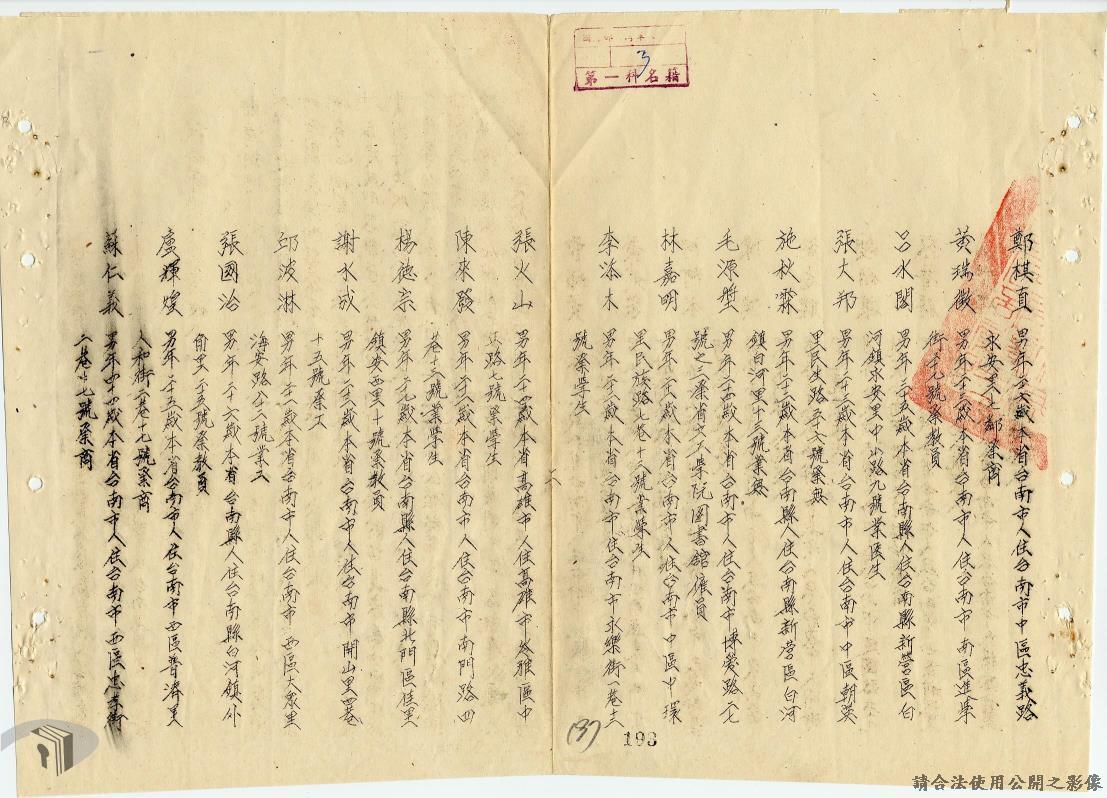 第一科名籍
3
鄭棋真 男年二六歲本省台南市人住台南市中區忠義路
永安里六七號業商
黃瑞徵 男年二十三歲本省台南市人住台南市南區進學
街二九號業教員
呂水閣 男年三十五歲本省台南縣人住台南縣新營區白
河鎮永安里中山路九號業医生
張大邦 男年二十三歲本省台南市人住台南市中區朝英
里民生路三十六號業無
施秋霖 男年二十三歲本省台南縣人住台南縣新营區白河
鎮白河里十三號業無
毛源 男年二十四歲本省台南市人住台南市博愛路二七
號之二業省立工學院图書舘僱員
林嘉明 男年二十六歲本省台南市人住台南市中區中環
里民族路七巷十二號業學生
李添木 男年二十歲本省台南市住台南市永樂街一巷十三
號業學生
張火山 男年二十四歲本省高雄市人住高雄市苓雅區中
正路七號業學生
陳來發 男年二十二歲本省台南市人住台南市南門路四
巷十三號業學生
楊德宗 男年二十九歲本省台南縣人住台南縣北門區佳里
鎮安西里十號業教員
謝水成 男年二十二歲本省台南市人住台南市開山里四巷
十五號業工
邱波淋 男年二十一歲本省台南市人住台南市西區大眾里
海安路八二號業工
張國治 男年二十六歲本省台南縣人住台南縣白河鎮外
角里二五號業教員
盧輝煌 男年二十五歲本省台南市人住台南市西區普濟里
人和街二巷十七號業商
蘇仁義 男年四十四歲本省台南市人住台南市西區忠孝街
二巷十七號業商
(37)
193
請合法使用公開之影像